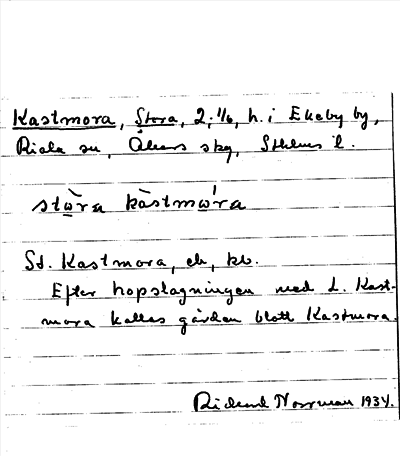 Kastmora, Stora, 2, 1/6, h. i Ekeby by,
Riala sn, Åkers skg, Sthlms l.
stὼra kàstmω´ra
St. Kastmora, eb, kb.
Efter hopslagningen med L. Kast-
mora kallas gården blott Kastmora.
Rickard Norrman 1934.